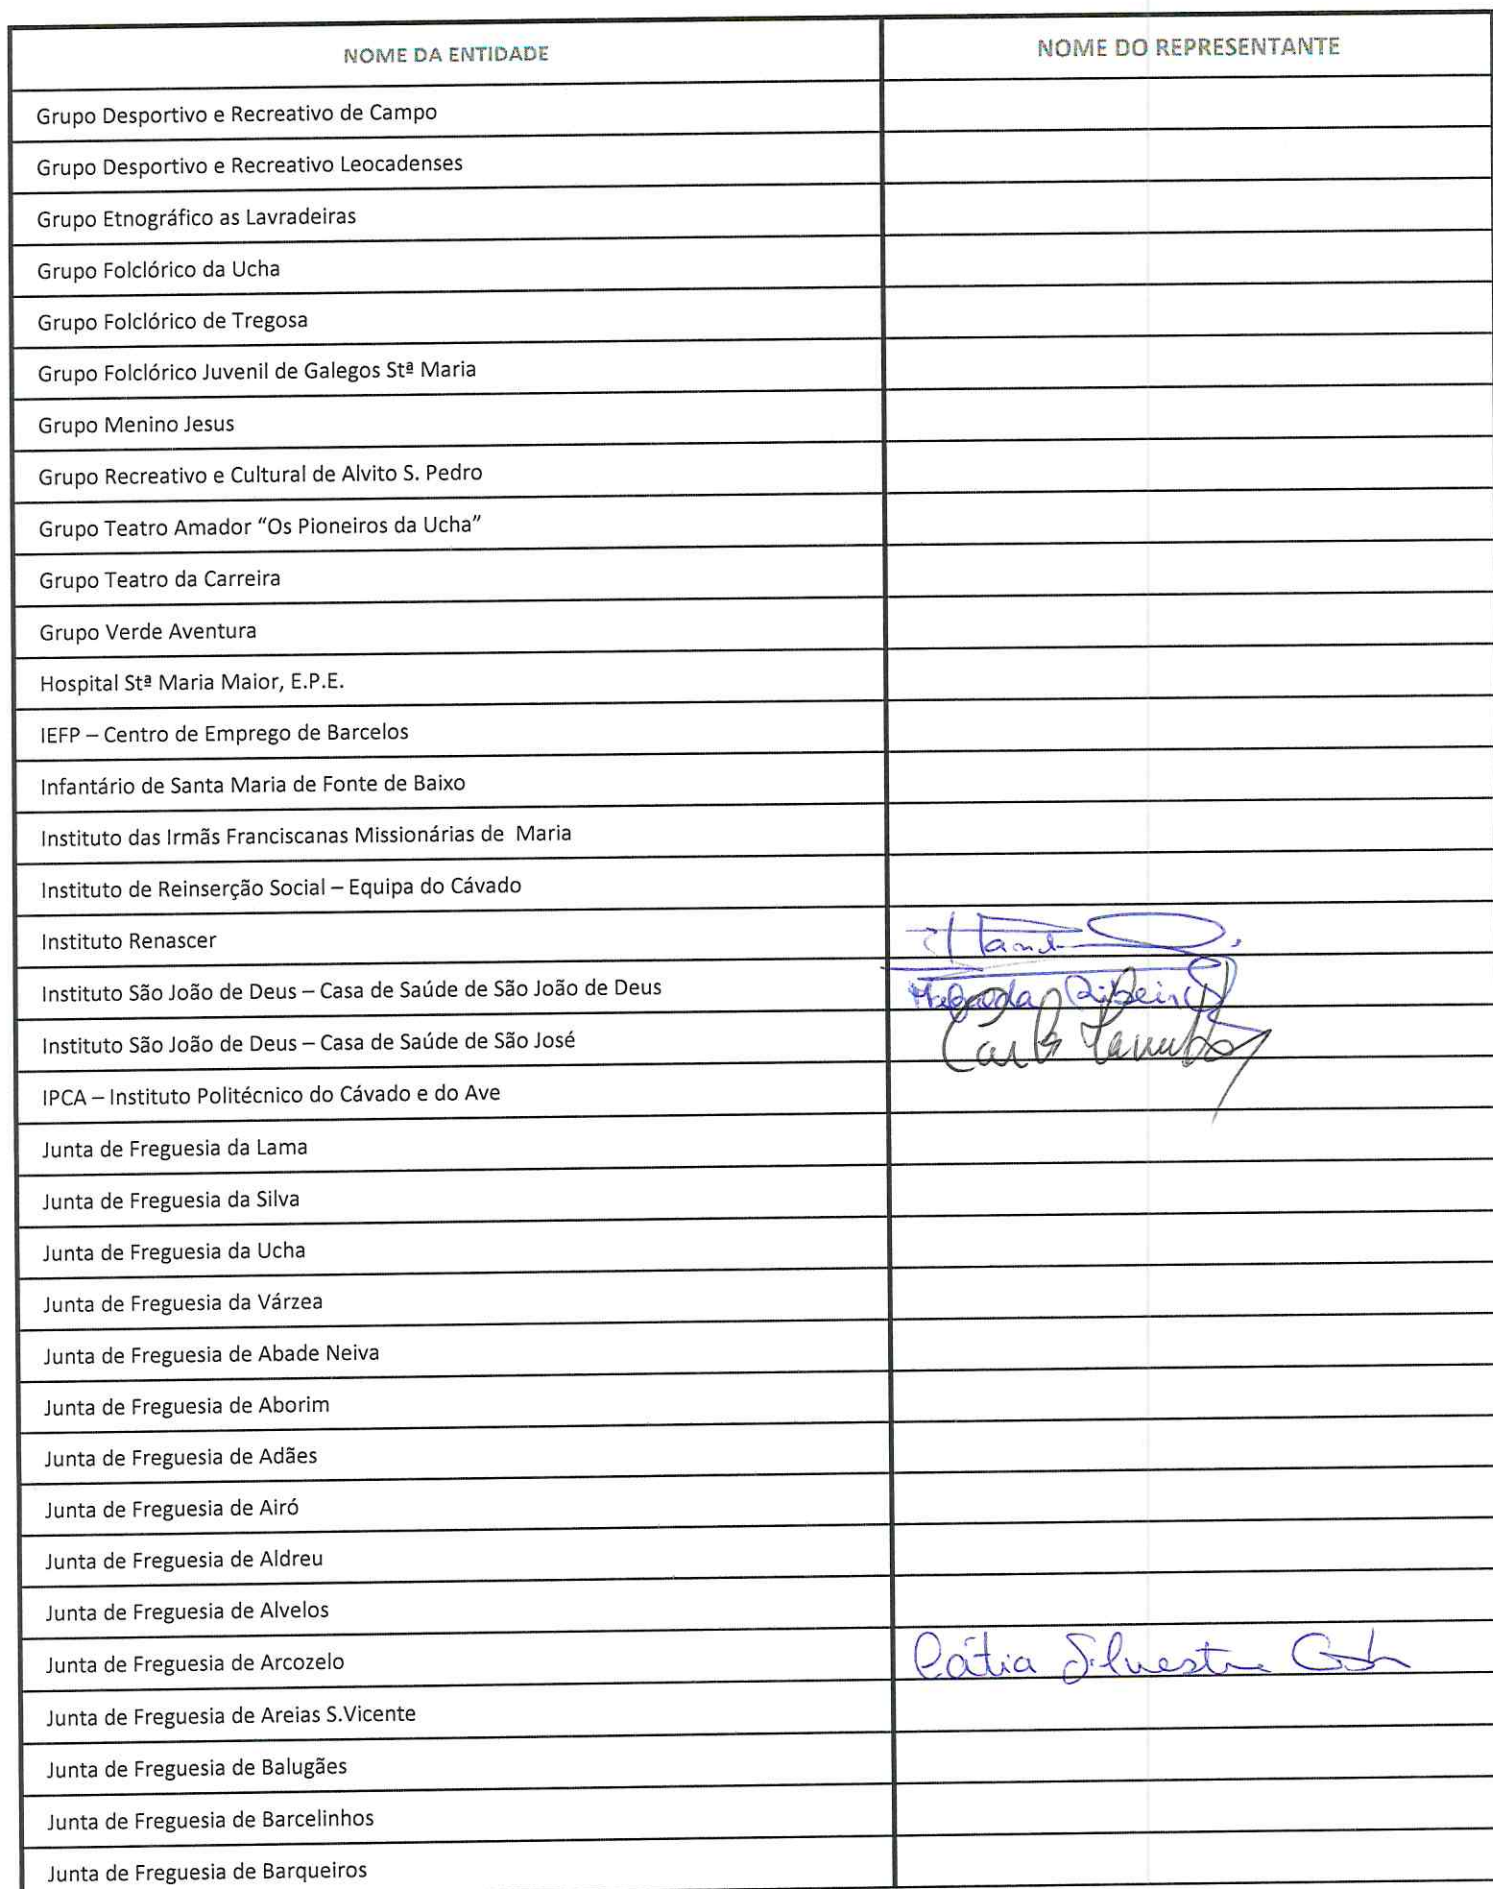 NOME DA ENTIDADE NOME DO REPRESENTANTE
Grupo Desportivo e Recreativo de Campo
Grupo Desportivo e Recreativo Leocadenses
Grupo Etnográfico as Lavradeiras
Grupo Folclórico da Ucha
Grupo Folclórico de Tregosa
Grupo Folclórico Juvenil de Galegos Stª Maria
Grupo Menino Jesus
Grupo Recreativo e Cultural de Alvito S. Pedro
Grupo Teatro Amador “Os Pioneiros da Ucha”
Grupo Teatro da Carreira
Grupo Verde Aventura
Hospital Stª Maria Maior, E.P.E.
IEFP – Centro de Emprego de Barcelos
Infantário de Santa Maria de Fonte de Baixo
Instituto das Irmãs Franciscanas Missionárias de Maria
Instituto de Reinserção Social – Equipa do Cávado
Instituto Renascer
Instituto São João de Deus – Casa de Saúde de São João de Deus Ribeiro
Instituto São João de Deus – Casa de Saúde de São José
IPCA – Instituto Politécnico do Cávado e do Ave
Junta de Freguesia da Lama
Junta de Freguesia da Silva
Junta de Freguesia da Ucha
Junta de Freguesia da Várzea
Junta de Freguesia de Abade Neiva
Junta de Freguesia de Aborim
Junta de Freguesia de Adães
Junta de Freguesia de Airó
Junta de Freguesia de Aldreu
Junta de Freguesia de Alvelos
Junta de Freguesia de Arcozelo Cátia Silvestre
Junta de Freguesia de Areias S.Vicente
Junta de Freguesia de Balugães
Junta de Freguesia de Barcelinhos
Junta de Freguesia de Barqueiros